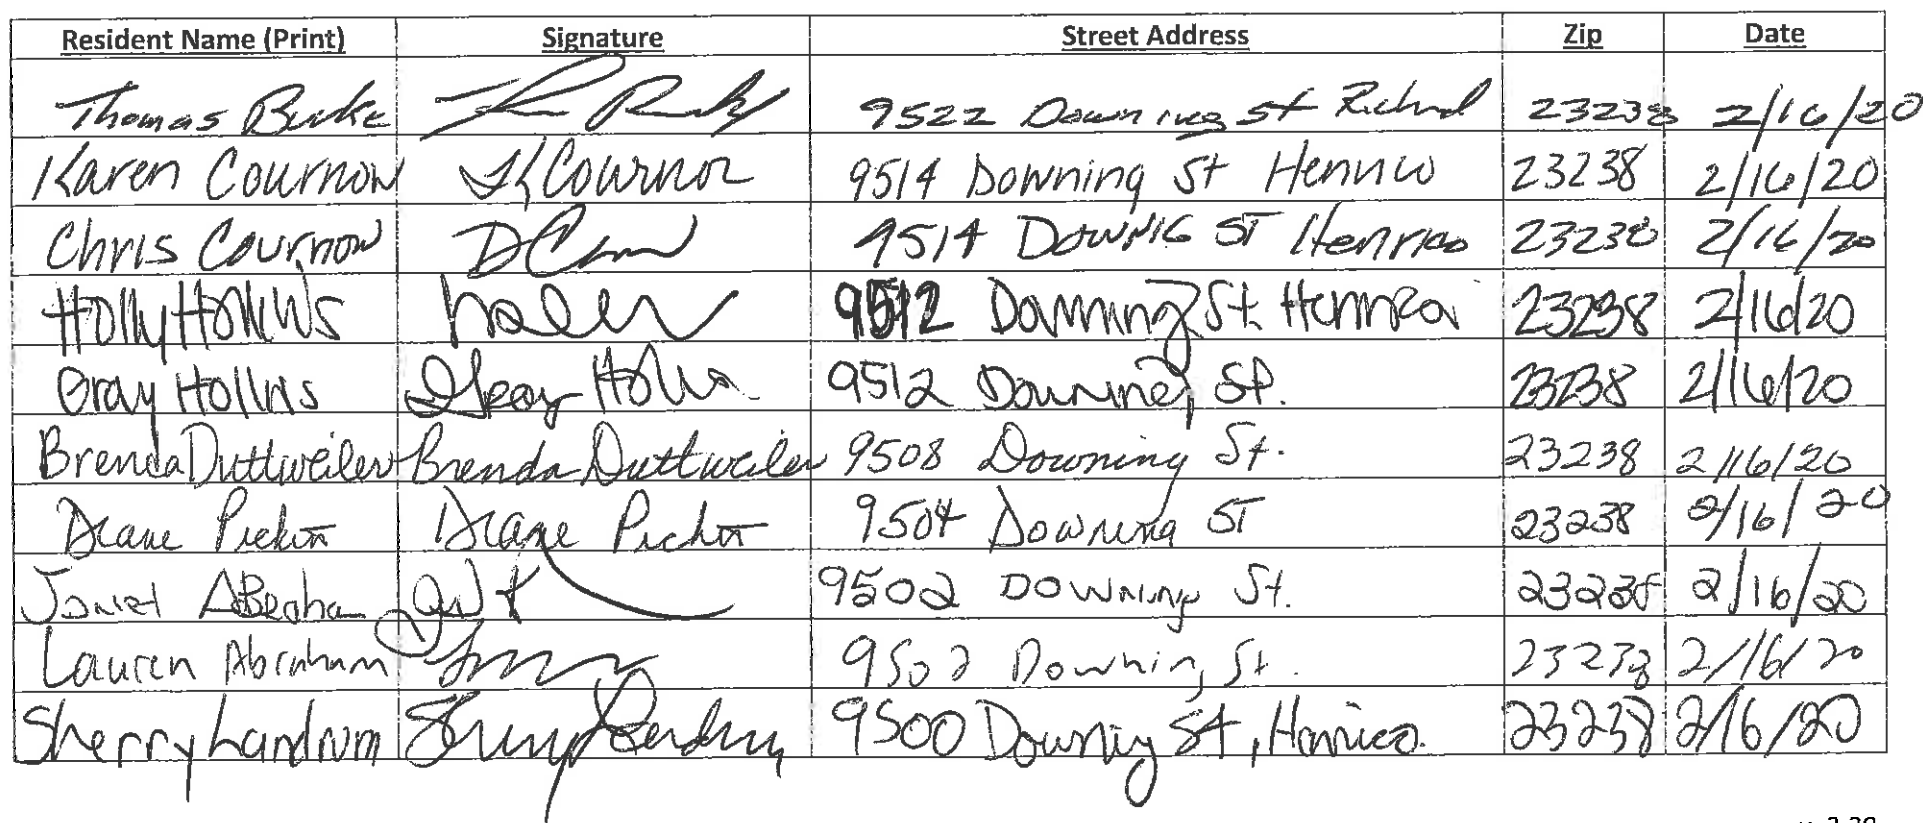 Resident Name (Print) Signature Street Address Zip Date
Thomas Burke 9522 Downing St Richmd 23238 2/16/20
Karen Cournow K Cournow 9514 Downing St Henrico 23238 2/16/20
Chris Cournow 9514 Downig ST Henrico 23238 2/16/20
Holly Hollins 9512 Downing St. Henrico 23238 2/16/20
Gray Hollins Gray Hollins 9512 Downing St. 23238 2/16/20
Brenda Duttweiler Brenda Duttweiler 9508 Downing St. 23238 2/16/20
Diane Pickett 9504 Downing ST 23238 2/16/20
Abraham 9502 Downing St. 23238 2/16/20
Lauren Abraham 9502 Downing St. 23238 2/16/20
Sherry Landrum Sherry Landrum 9500 Downing St, Henrico. 23238 2/16/20